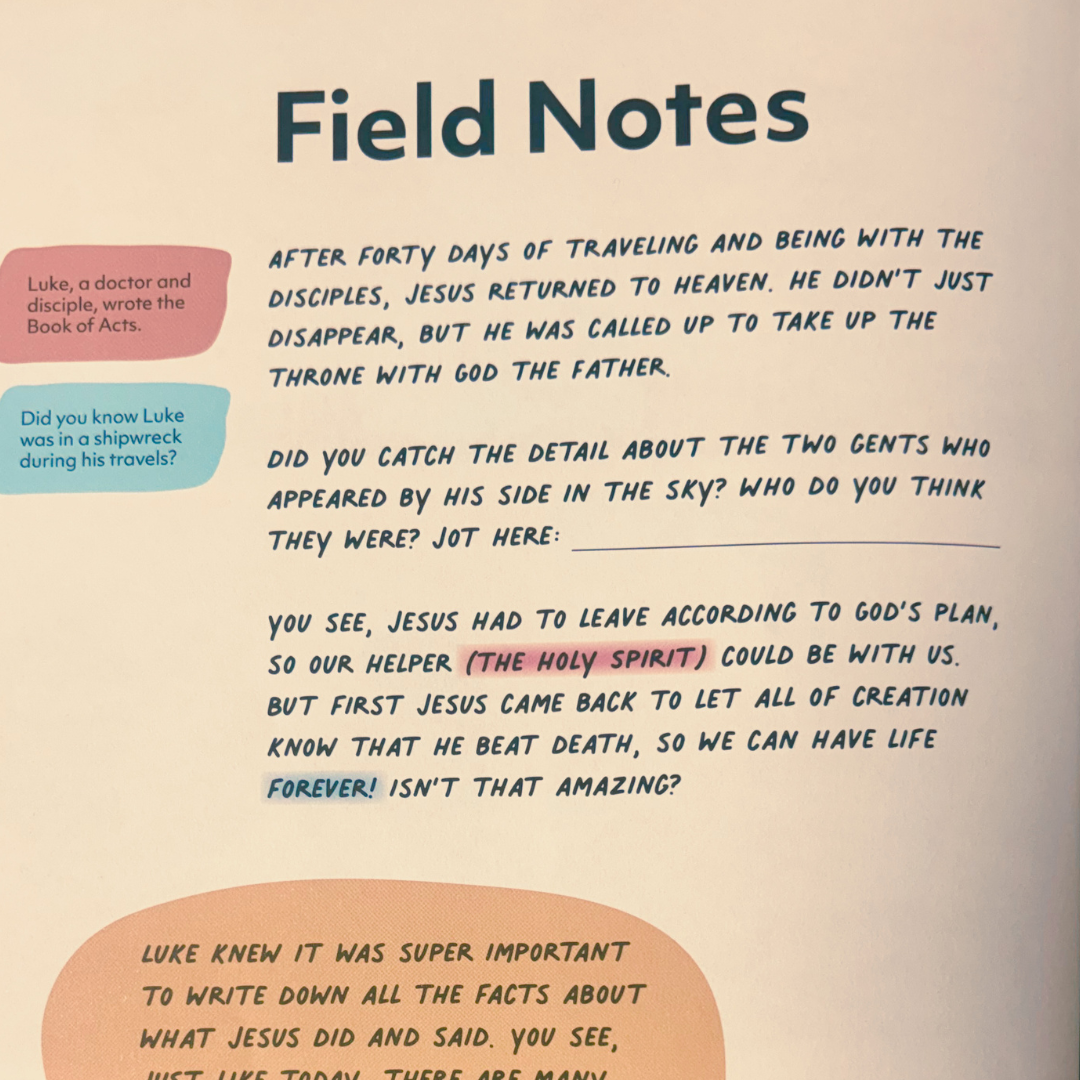 Field Notes
Luke, a doctor and
disciple, wrote the
Book of Acts.
Did you know Luke
was in a shipwreck
during his travels?
AFTER FORTY DAYS OF TRAVELING AND BEING WITH THE
DISCIPLES, JESUS RETURNED TO HEAVEN. HE DIDN'T JUST
DISAPPEAR, BUT HE WAS CALLED UP TO TAKE UP THE
THRONE WITH GOD THE FATHER.
DID YOU CATCH THE DETAIL ABOUT THE TWO GENTS WHO
APPEARED BY HIS SIDE IN THE SKY? WHO DO YOU THINK
THEY WERE? JOT HERE:
YOU SEE, JESUS HAD TO LEAVE ACCORDING TO GOD'S PLAN,
SO OUR HELPER (THE HOLY SPIRIT) COULD BE WITH US.
BUT FIRST JESUS CAME BACK TO LET ALL OF CREATION
KNOW THAT HE BEAT DEATH, SO WE CAN HAVE LIFE
FOREVER! ISN'T THAT AMAZING?
LUKE KNEW IT WAS SUPER IMPORTANT
TO WRITE DOWN ALL THE FACTS ABOUT
WHAT JESUS DID AND SAID. YOU SEE,
JUST LIKE TODAY, THERE ARE MANY